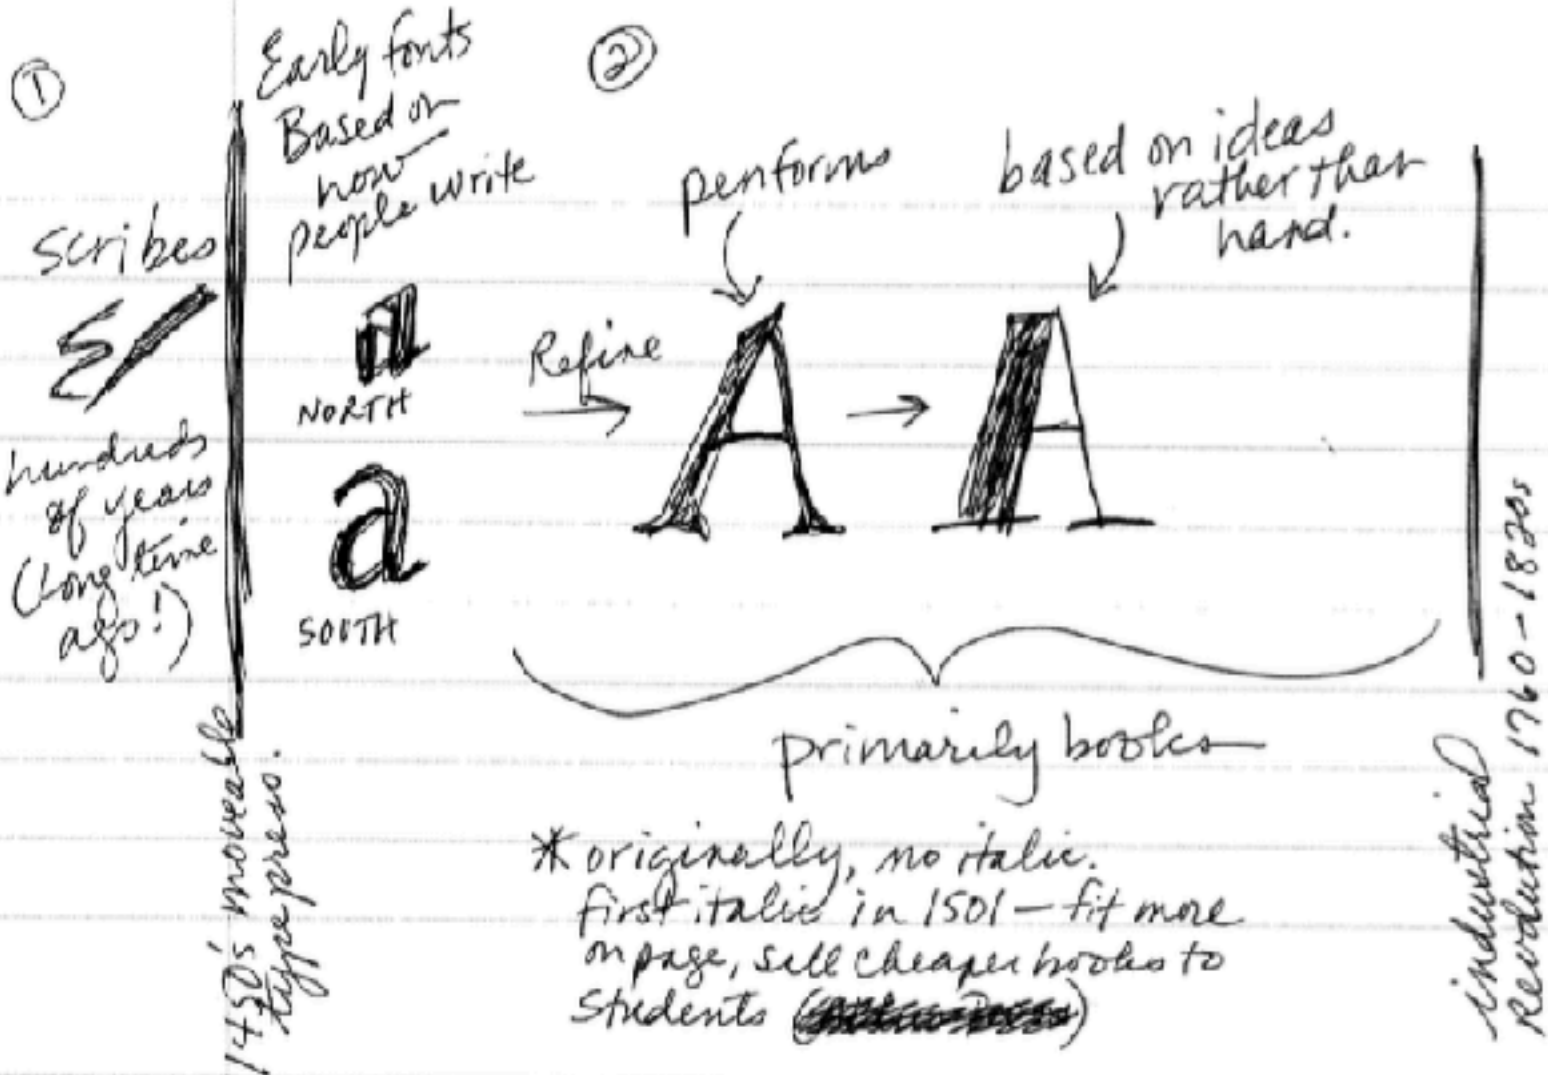 ①
scribes
hundreds
of years
(long time
ago!)
1450's moveable
type press.
Early fonts
Based on
how
people write
a
NORTH
a
SOUTH
②
Refine
penforms
A
based on ideas
rather than
hand.
A
primarily books
* originally, no italic.
first italic in 1501 – fit more
on page, sell cheaper books to
students
industrial
Revolution 1760 – 1820s